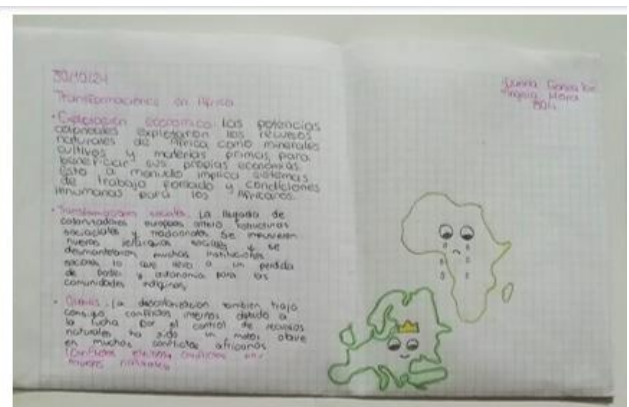 30/10/24
Transformaciones en Africa
• Explotación económica: las potencias
coloniales explotaron los recursos
naturales de Africa como minerales
cultivos y materias primas, para
beneficiar sus propias economias.
Esto a menudo implica sistemas
de trabajo forzado y condiciones
inhumanas para los Africanos.
• Transformaciones sociales. La llegada de
colonizadores europeos altero estructuras
sociales y tradicionales se
nuevas jerarquias sociales y se
desmantelaron muchas instituciones
lo que llevo a un perdida
de poder y autonomia para las
comunidades indigenas
• la descolonizacion tambien trajo
consigo conflictos internos debido a
la lucha por el control de recursos
naturales ha sido un motor clave
en muchos conflictos africanos
conflictos
naturales
801